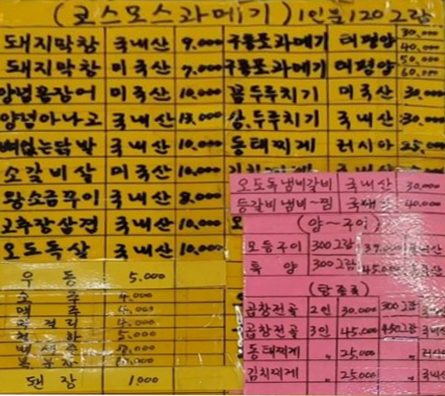 (코스모스과메기) 1인분120그람
돼지막창 국내산 9.000
돼지막창 미국산 7.000
양념꼼장어 미국산 10.000
양념아나고 국내산
뼈없는닭발 국내산 10.000
소갈비살 미국산 10.000
왕소금구이 국내산 8.000
고추장삼겹 국내산 10.000
오도독살 국내산 10.000
구룡포과메기 태평양 30.000 40.000
구룡포과메기 태평양 50.000 60.000
두루치기 미국산 30.000
두루치기 국내산 30.000
동태찌게 러시아 25.000
오도독냄비갈비 국내산 30.000
등갈비냄비~찜 국내산 40.000
(양~구이)
모듬구이 300그람 37.000
특양 300그람 45.000
(탕종류)
곱창전골 2인 30.000 300그람
곱창전골 3인 45.000 450그람
동태찌게 〃 25.000 〃
김치찌게 〃 25.000 〃
우동 5.000
소주 4.000
맥주 4.000
막걸리
청하 5.000
백세주
복분자
된장 1000